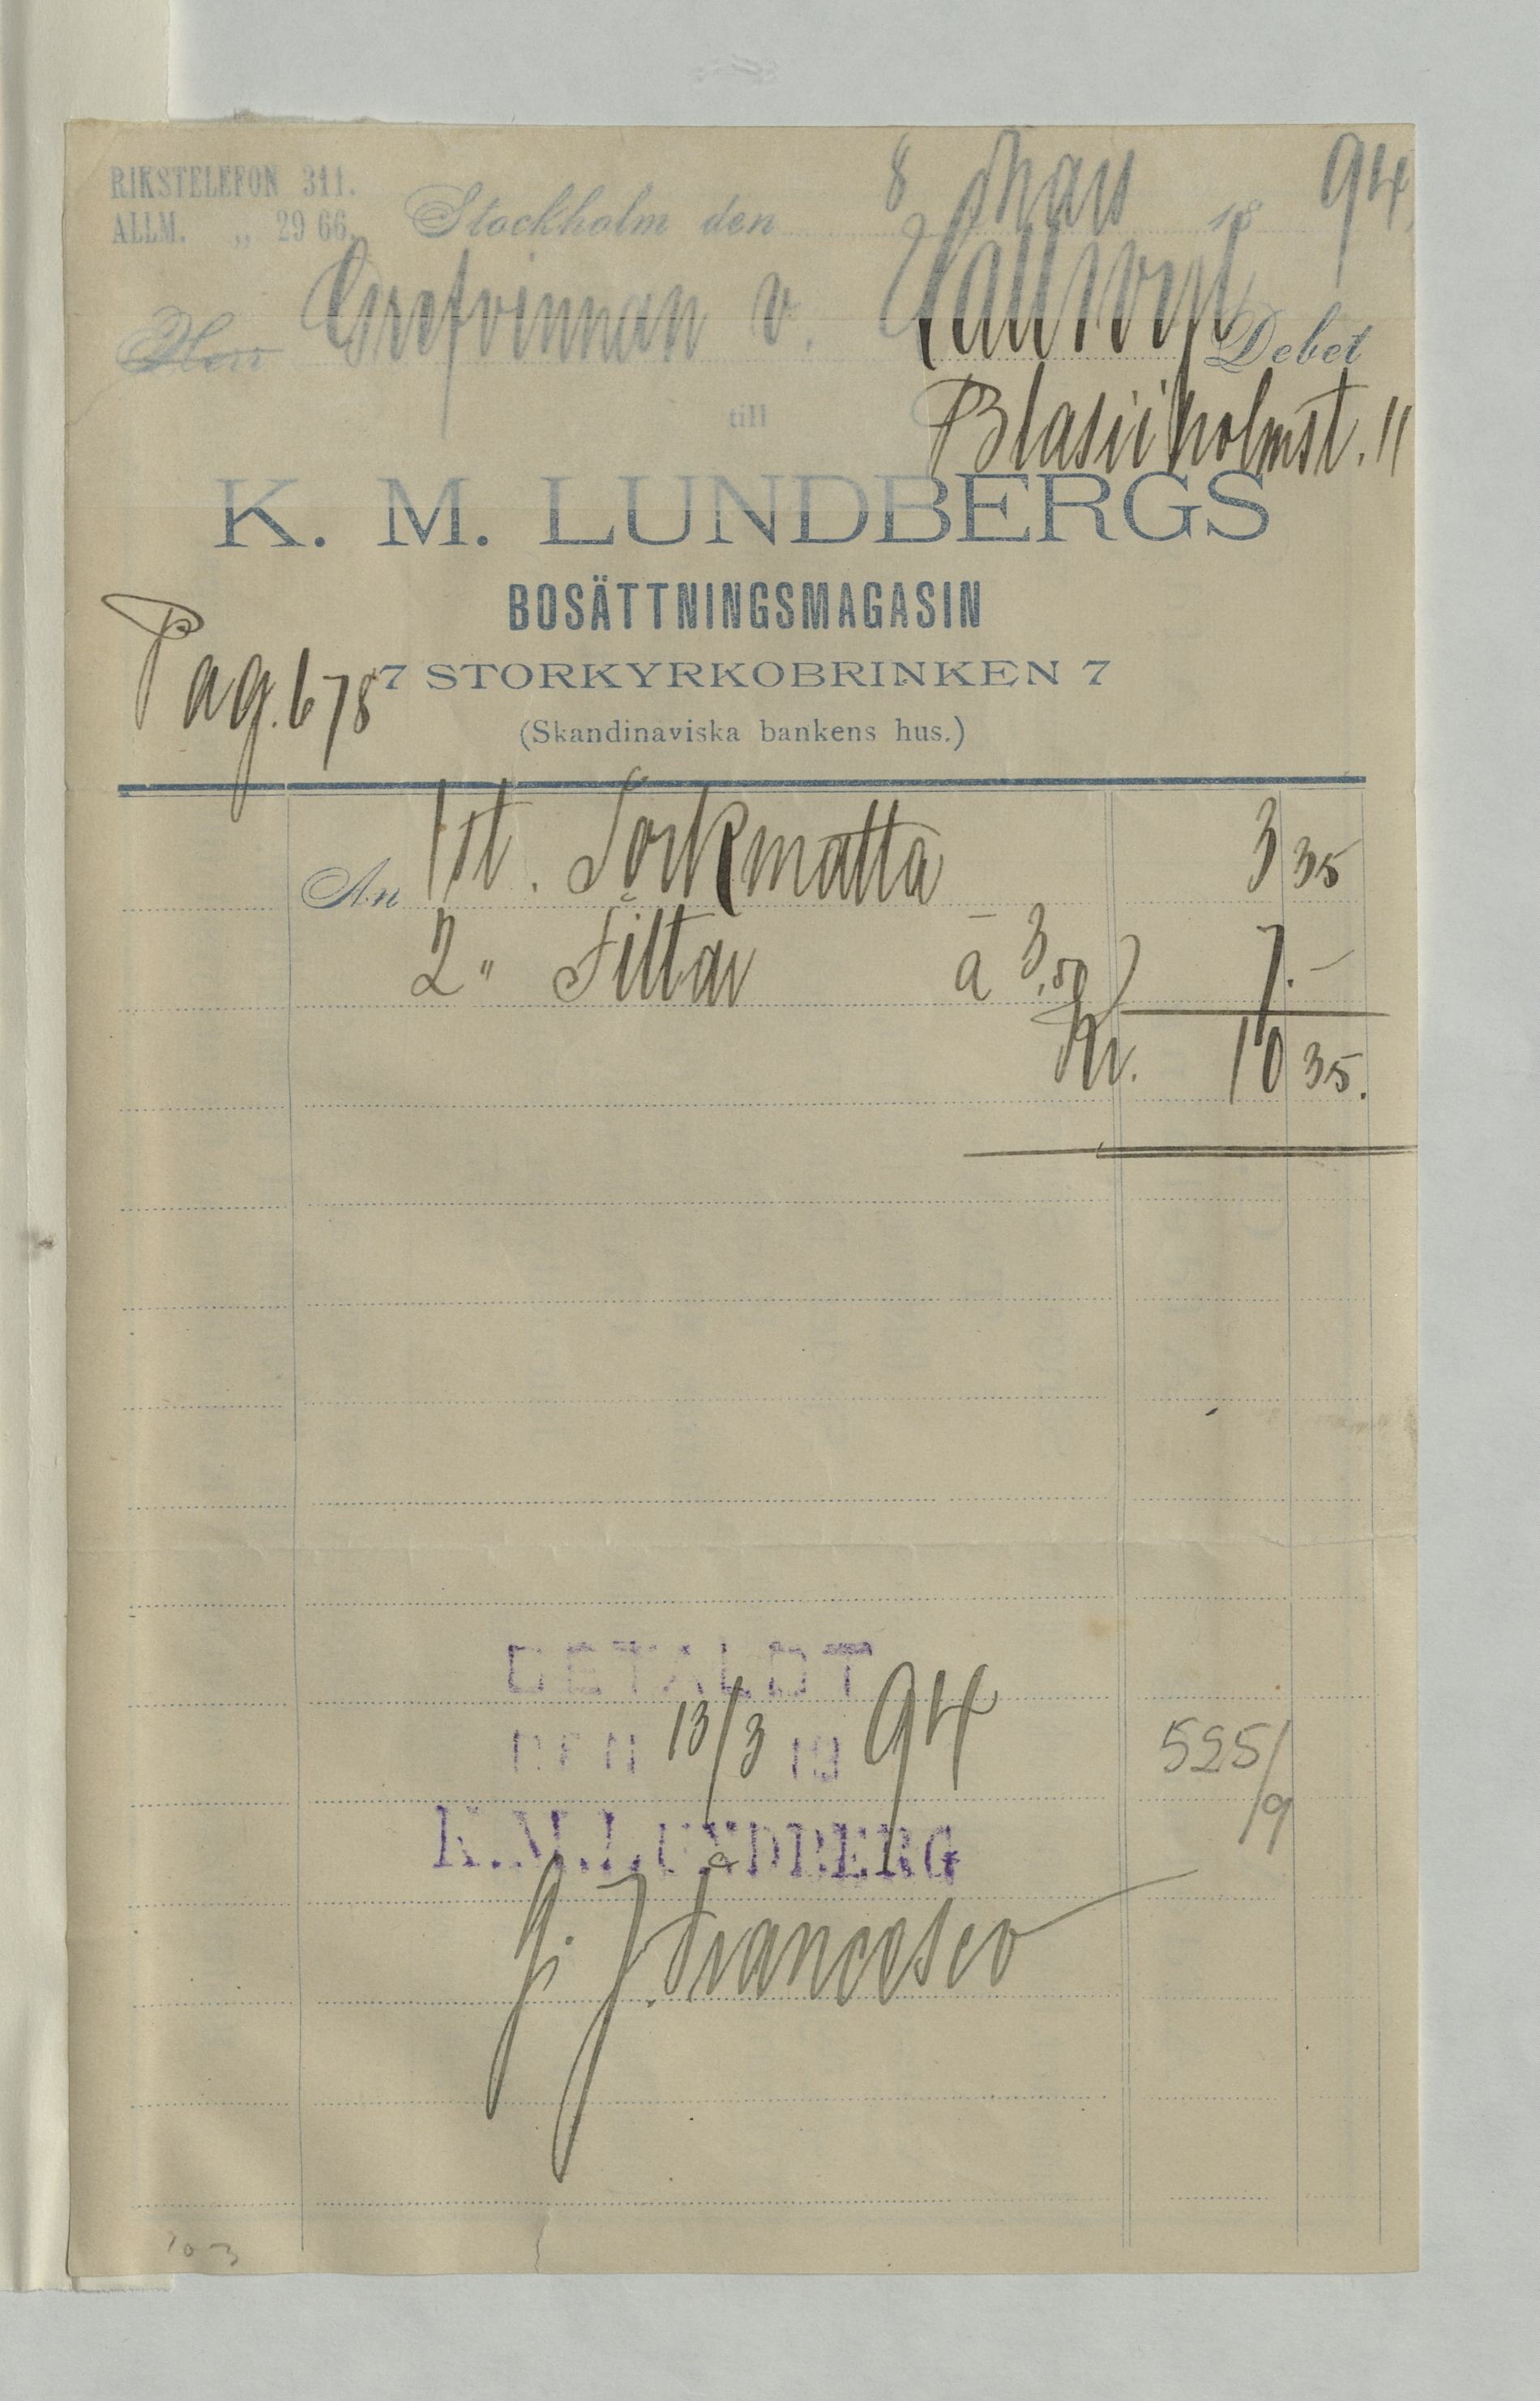 RIKSTELEFON 311.
ALLM. „ 29 66.
Stockholm den 8 Mars 1894
Herr Grefvinnan v. Hallwyl Debet
till
Blasiiholmst. 11
K. M. LUNDBERGS
BOSÄTTNINGSMAGASIN
Pag. 678
7 STORKYRKOBRINKEN 7
(Skandinaviska bankens hus.)
An 1 st. Korkmatta 3 35
2 " Filtar à 3,50 7.–
Kr. 10 35.
BETALDT
DEN 13/3 19 94
K.M.LUNDBERG
525/9
g. J. Francesco